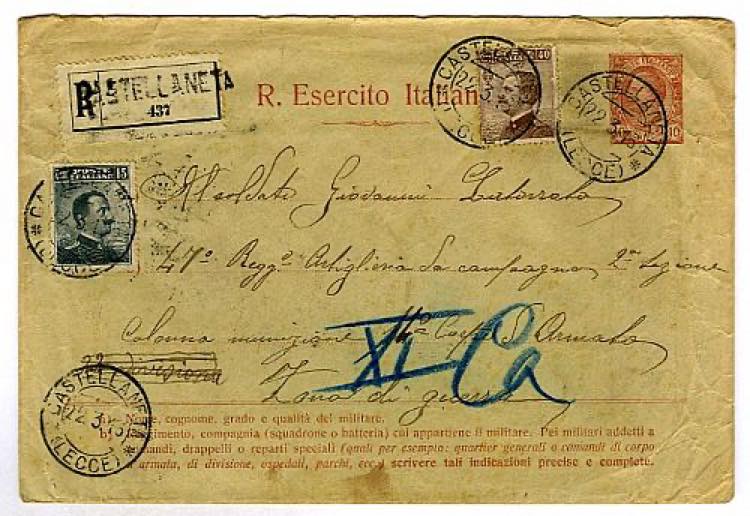 R CASTELLANETA
437
R. Esercito Italian
CASTELLANETA
22.3
40
CASTELLANETA
22.3.
(LECCE)
10
15
Al soldato Giovanni
47º Reggº Artiglieria da campagna 2ª Sezione
Colonna munizione Corpo d'Armata
22 Divisione
XI Ca
Zona di guerra
CASTELLANETA
22.3.
(LECCE)
a) Nome, cognome, grado e qualità del militare.
b) Reggimento, compagnia (squadrone o batteria) cui appartiene il militare. Pei militari addetti a
comandi, drappelli o reparti speciali (quali per esempio: quartier generali o comandi di corpo
d'armata, di divisione, ospedali, parchi, ecc.) scrivere tali indicazioni precise e complete.